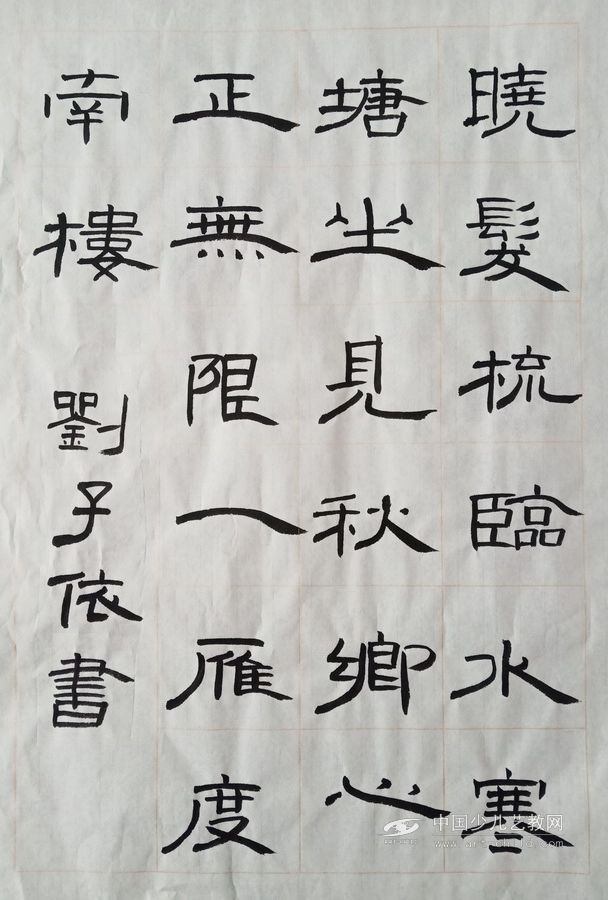 曉髮梳臨水寒
塘坐見秋鄉心
正無限一雁度
南樓
劉子依書
中国少儿艺教网